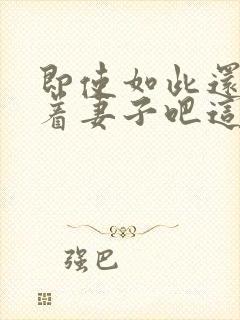 即使如此還
着妻子吧這
强巴